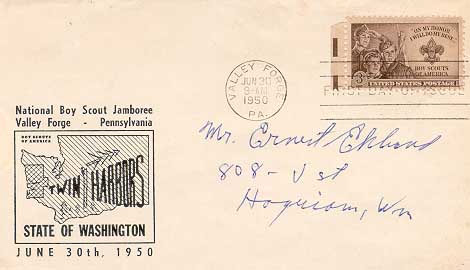 "ON MY HONOR
I WILL DO MY BEST..."
BOY SCOUTS
OF AMERICA
3¢ UNITED STATES POSTAGE
VALLEY FORGE
JUN 30
9-AM
1950
PA.
FIRST DAY OF ISSUE
National Boy Scout Jamboree
Valley Forge - Pennsylvania
BOY SCOUTS
OF AMERICA
TWIN HARBORS
STATE OF WASHINGTON
JUNE 30th, 1950
Mr. Ernest Eklund
808 - J st
Hoquiam, Wn